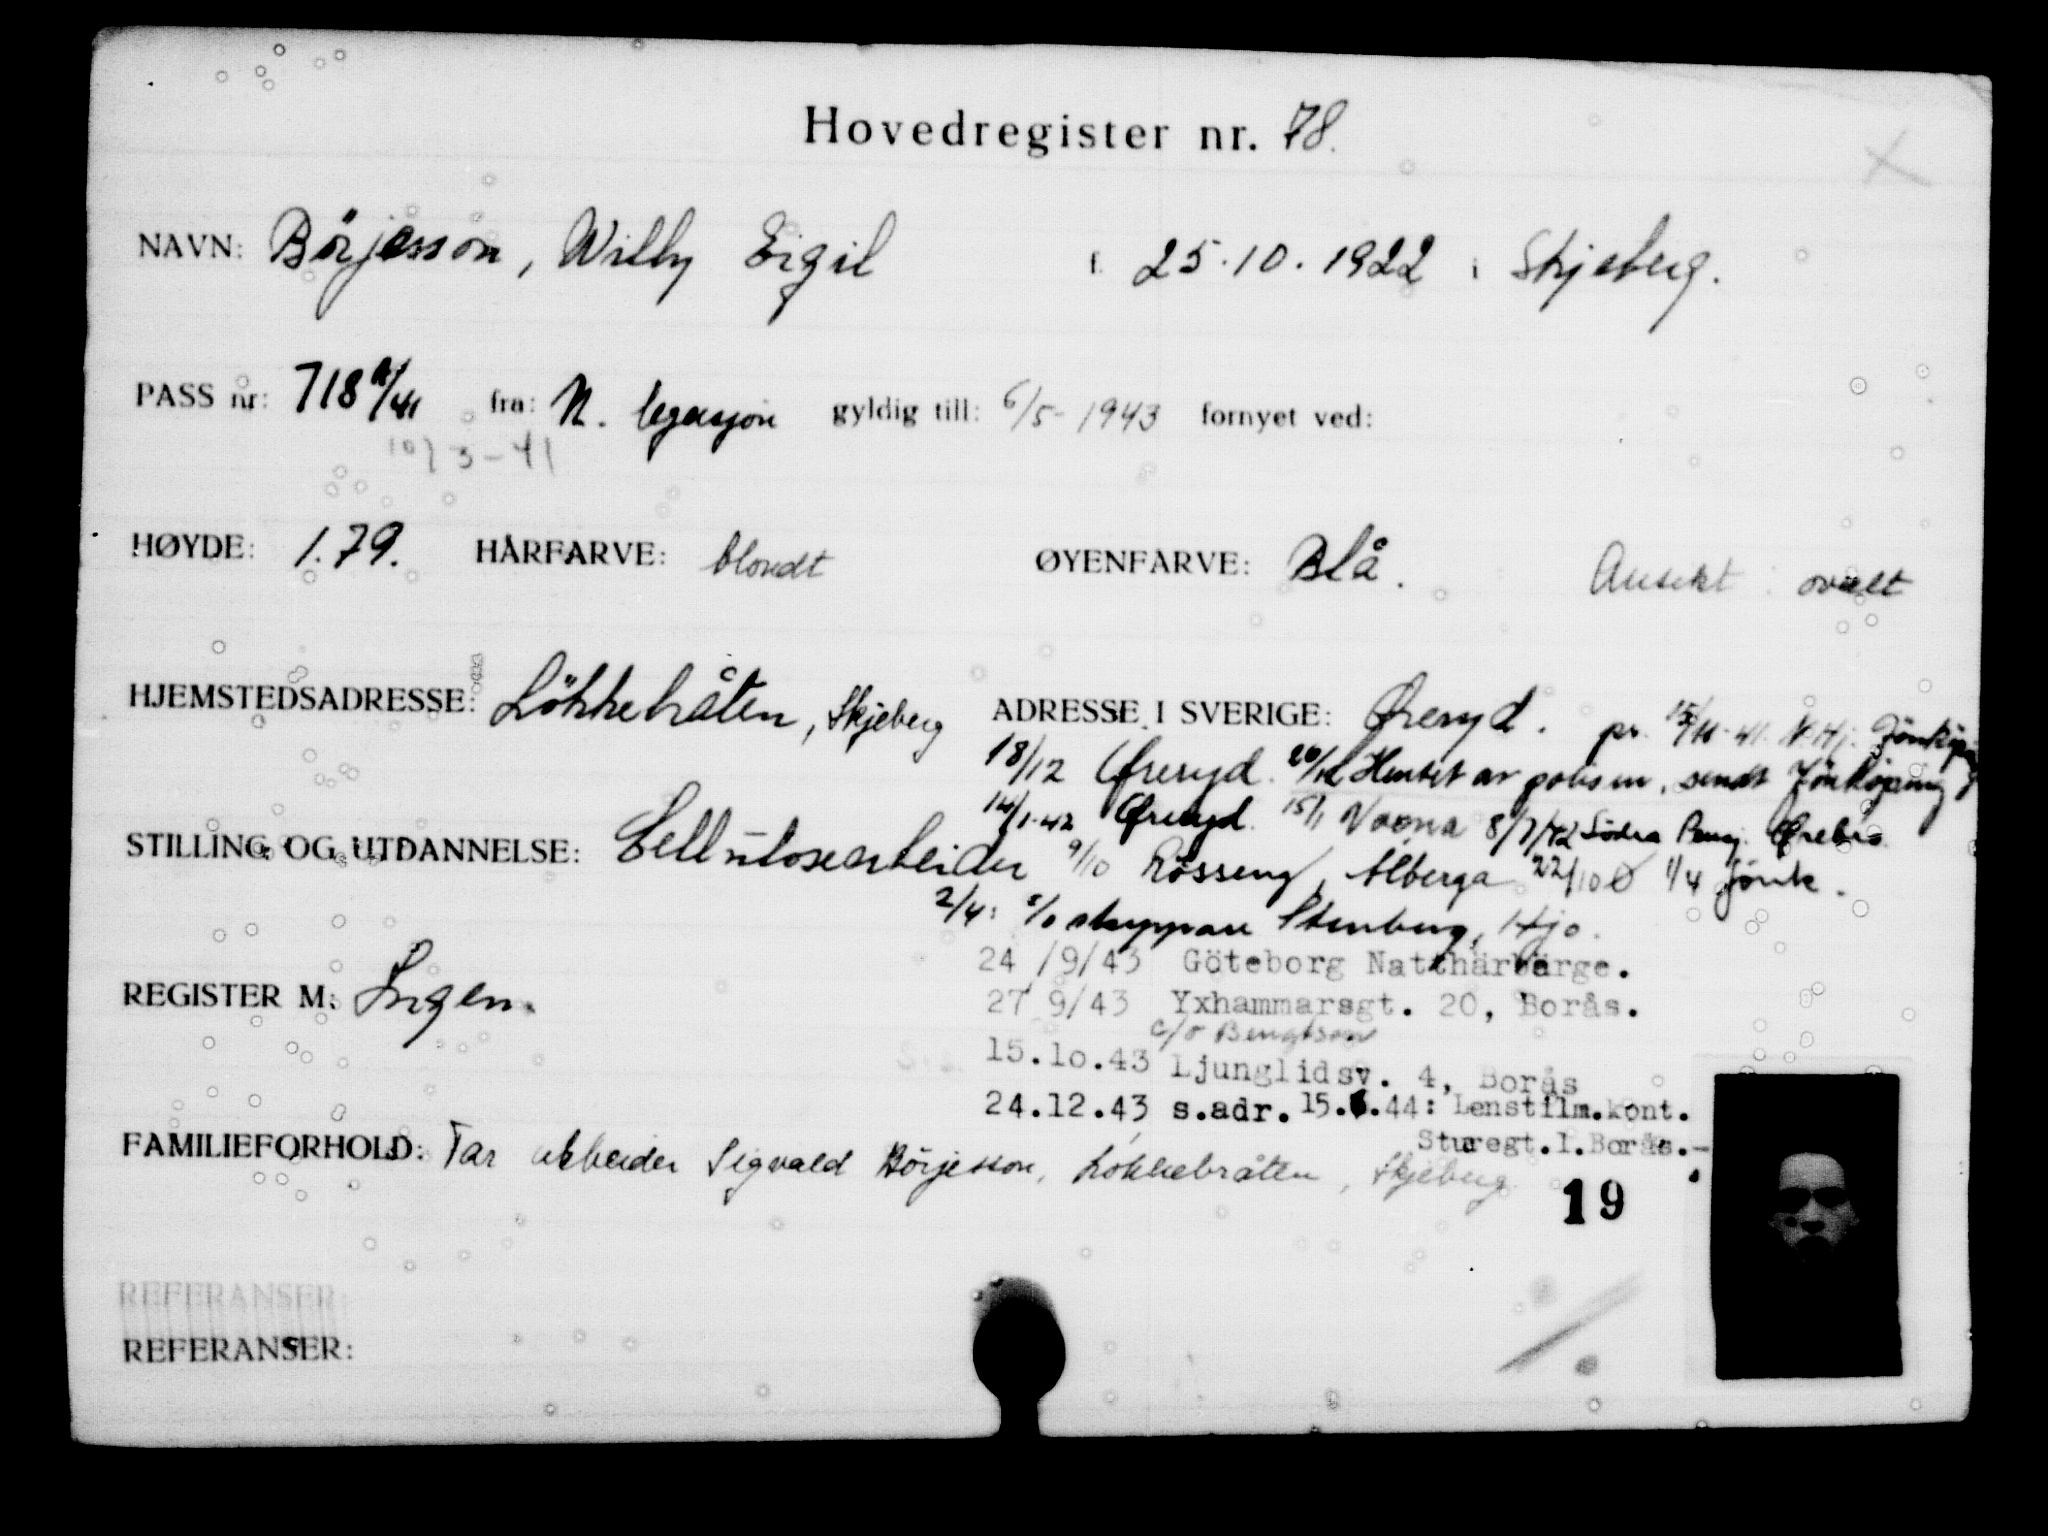 Hovedregister nr. 78.
NAVN: Börjesson, Willy Eigil f. 25.10.1922 i Skjeberg.
PASS nr: 718 A/41 fra: N. legasjon gyldig till: 6/5-1943 fornyet ved:
10/3-41
HØYDE: 1.79. HÅRFARVE: blondt ØYENFARVE: Blå. Ansikt: ovalt
HJEMSTEDSADRESSE: Lökkebråten, Skjeberg ADRESSE I SVERIGE: Øreryd. pr. 15/11-41. N.Hj. Jönköping
18/12 Øreryd. 20/12 Hentet av polisen, sendt Jönköping
14/1-42 Øreryd. 15/1 Voxna 8/7/42 Södra Örebro
STILLING OG UTDANNELSE: Cellulosearbeider 9/10 Rösseng, Alberga 22/10 Ö 1/4 Jönk.
2/4: c/o skeppare Stenberg, Hjo.
24/9/43 Göteborg Natthärbärge.
REGISTER M: Ingen.
27 9/43 Yxhammarsgt. 20, Borås.
c/o Bengtson
15.10.43 Ljunglidsv. 4, Borås
24.12.43 s.adr. 15.6.44: Lenstilm.kont.
Sturegt.1.Borås.-
FAMILIEFORHOLD: Far arbeider Sigvald Börjesson, Lökkebråten, Skjeberg
19
REFERANSER:
REFERANSER: